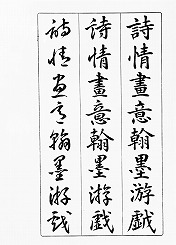 詩情畫意翰墨游戲
詩情畫意翰墨游戲
詩情畫意翰墨游戲